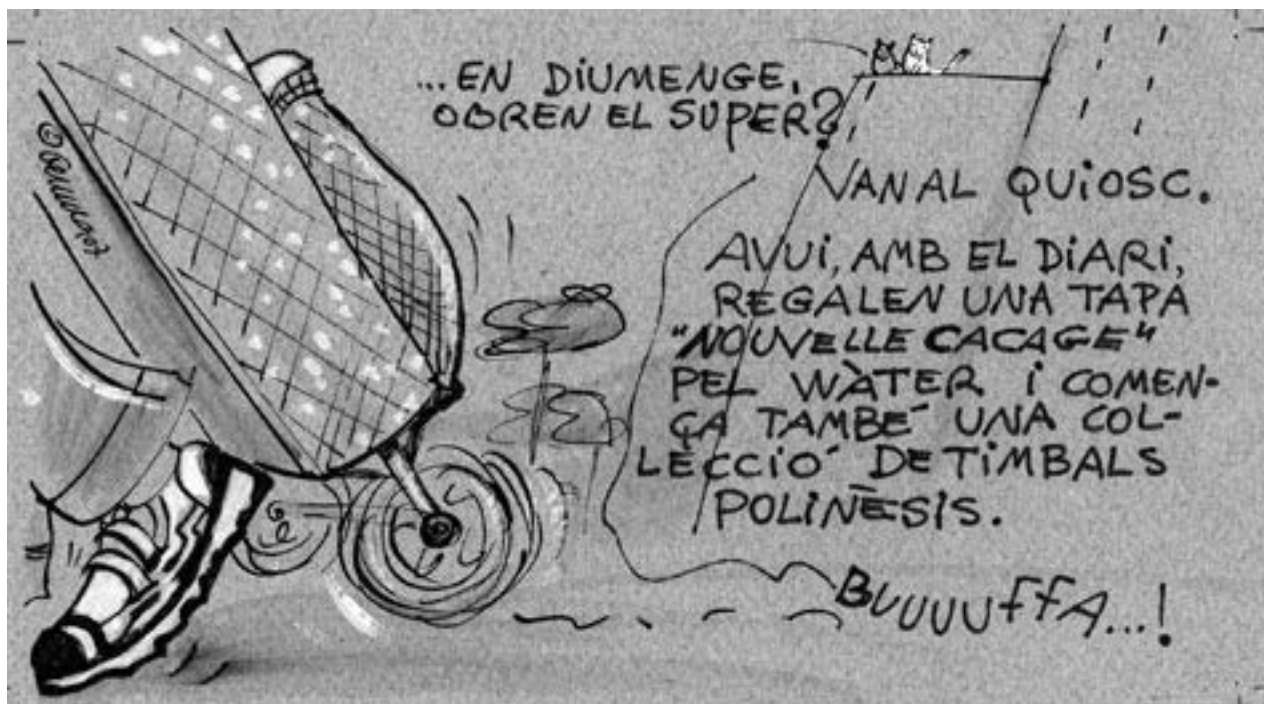 ...EN DIUMENGE,
OBREN EL SUPER?
VAN AL QUIOSC.
AVUI, AMB EL DIARI,
REGALEN UNA TAPA
"NOUVELLE CACAGE"
PEL WÀTER I COMEN-
ÇA TAMBÉ UNA COL-
LECCIÓ DE TIMBALS
POLINÈSIS.
BUUUUFFA...!